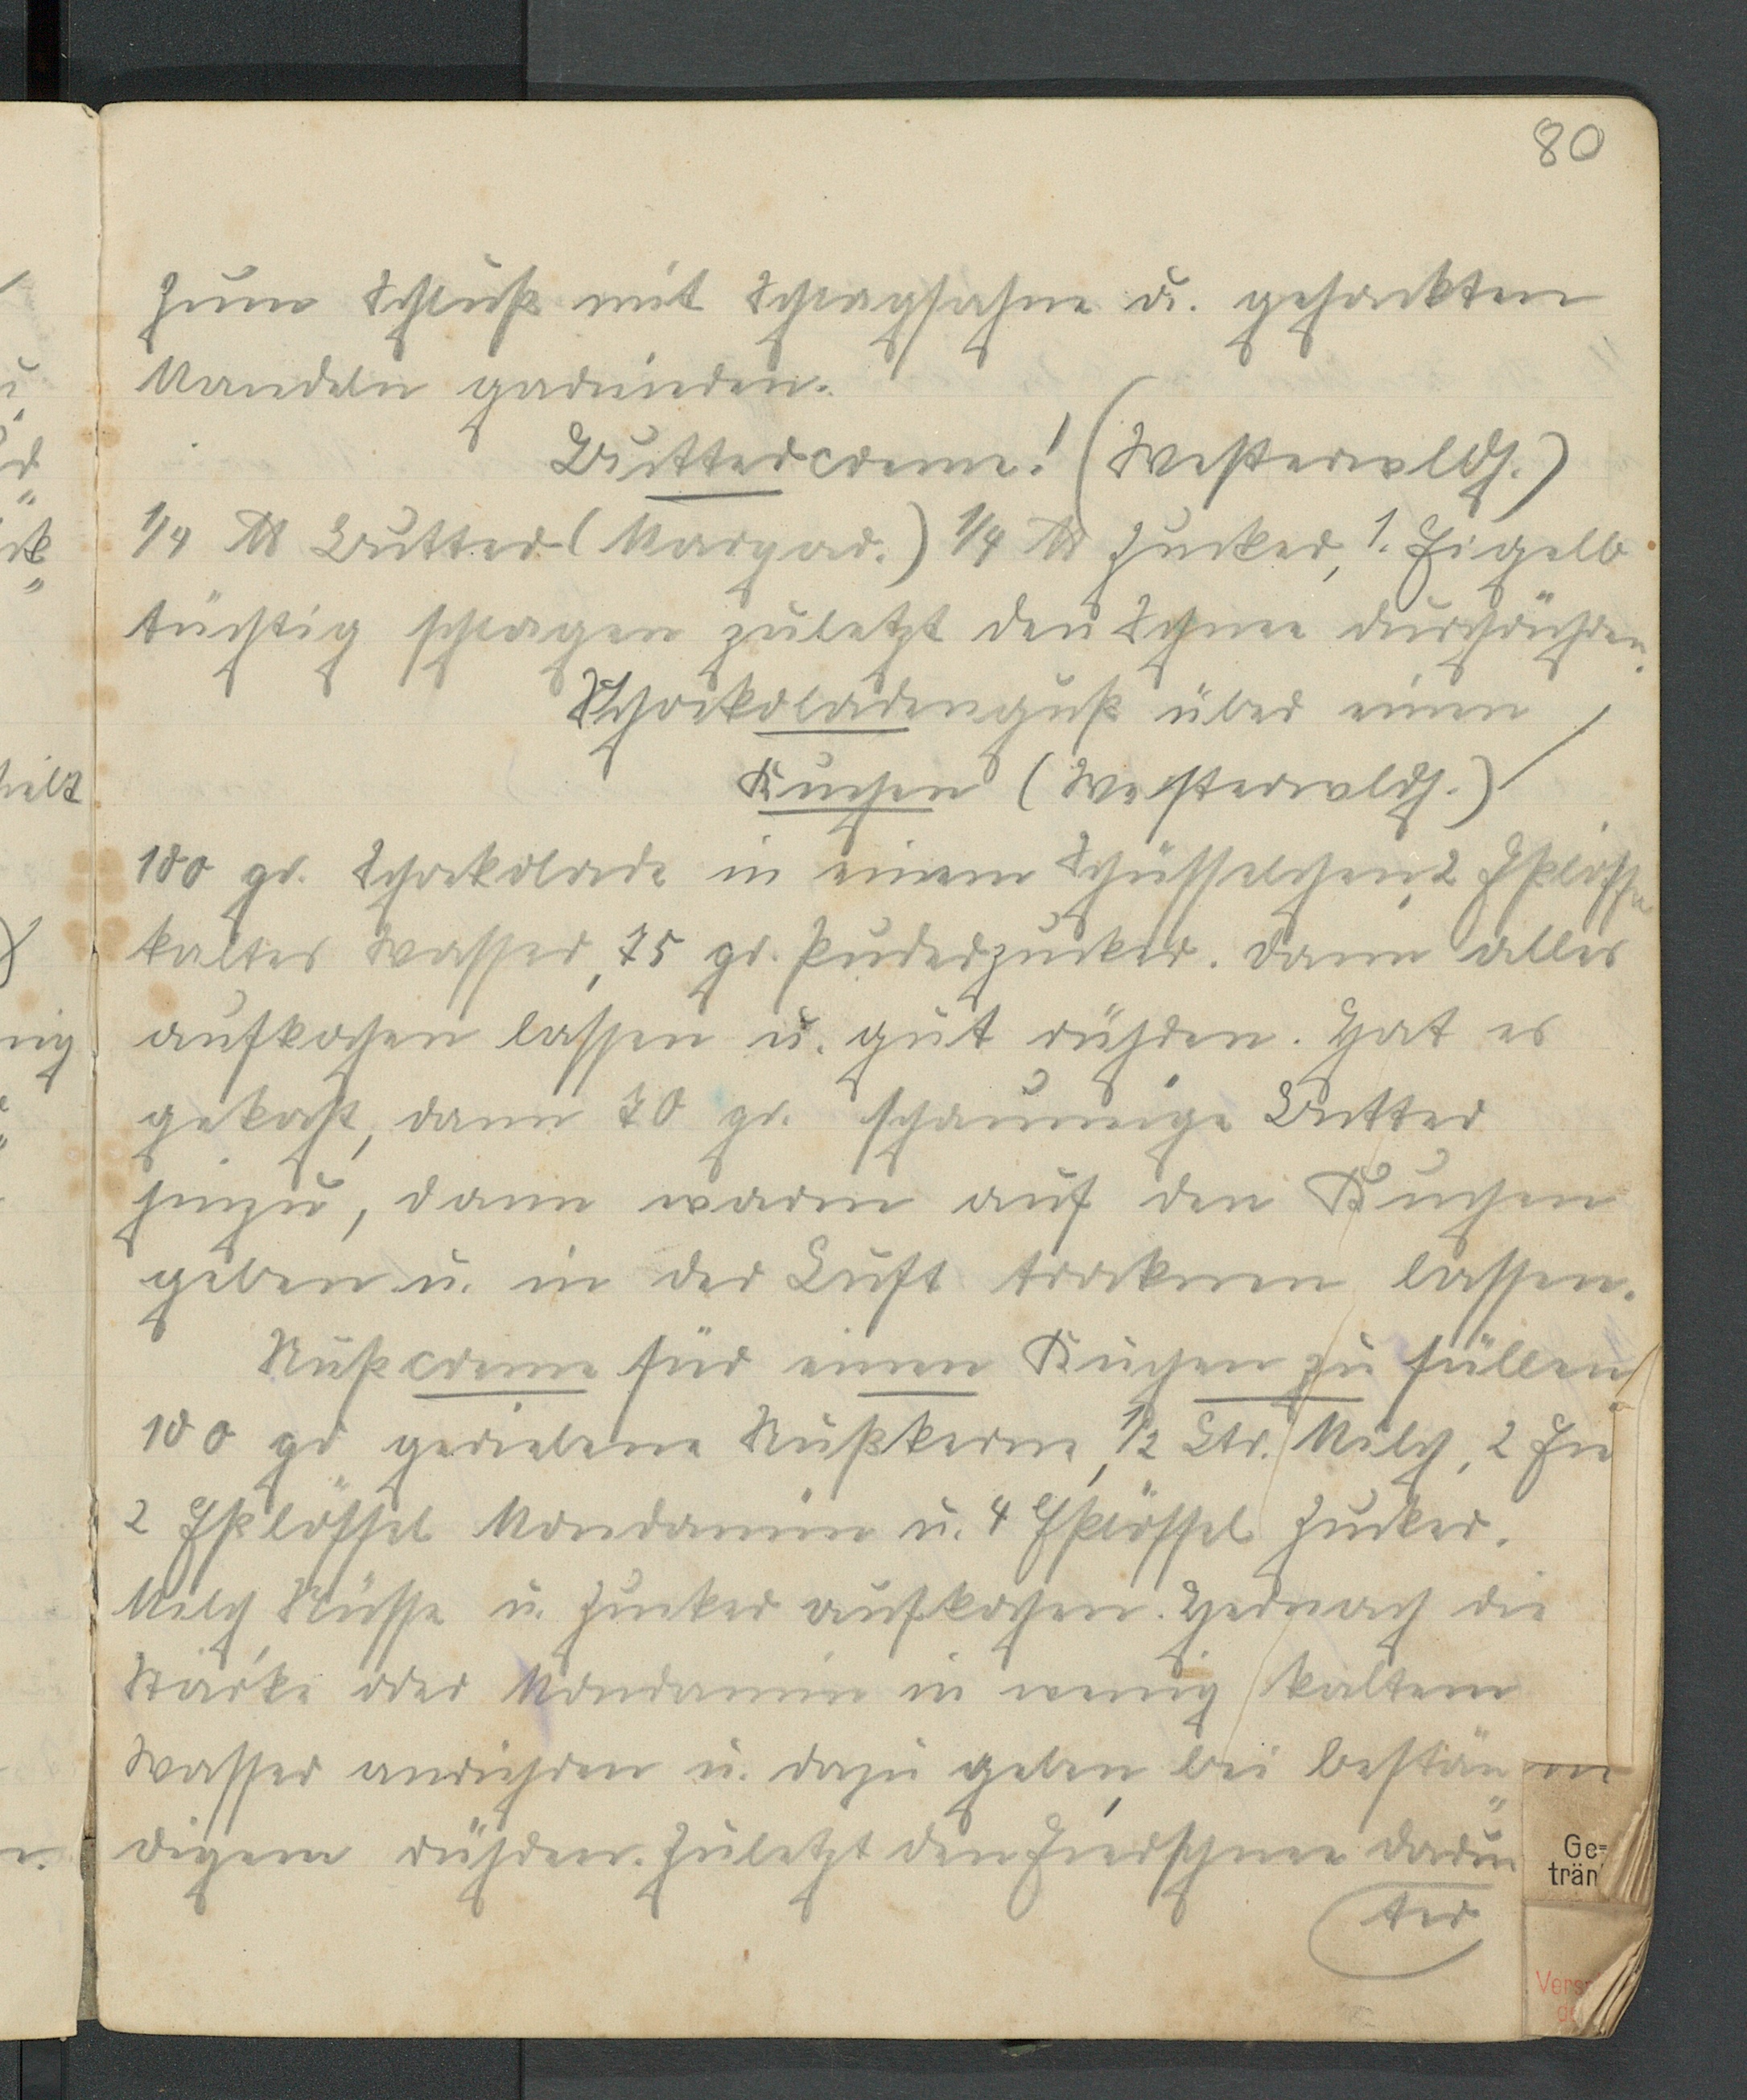 80
zum Schluß mit Schlagsahne u. gehackten
Mandeln garnieren.
Buttercreme! (Westerwldh.)
1/4 ℔ Butter (Margar.) 1/4 ℔ Zucker, 1. Eigelb
tüchtig schlagen zuletzt den Schnee durchrühren.
Schockoladenguß über einen
Kuchen (Westerwldh.)
100 gr. Schockolade in einem Schüsselchen, 2 Eßlöffel
kaltes Wasser, 75 gr. Puderzucker. Dann alles
aufkochen lassen u. gut rühren. Hat es
gekocht, dann 70 gr. schaumige Butter
hinzu, dann warm auf den Kuchen
geben u. in der Luft trocknen lassen.
Nußcreme für einen Kuchen zu füllen
100 gr geriebene Nußkerne, 1/2 Ltr. Milch, 2 Eier
2 Eßlöffel Mondamin u. 4 Eßlöffel Zucker.
Milch, Nüsse u. Zucker aufkochen. Hernach die
Stärke oder Mondamin in wenig kaltem
Wasser anrühren u. dazu geben, bei bestän
digem rühren. Zuletzt den Eierschnee darun
ter
Ge=
trän